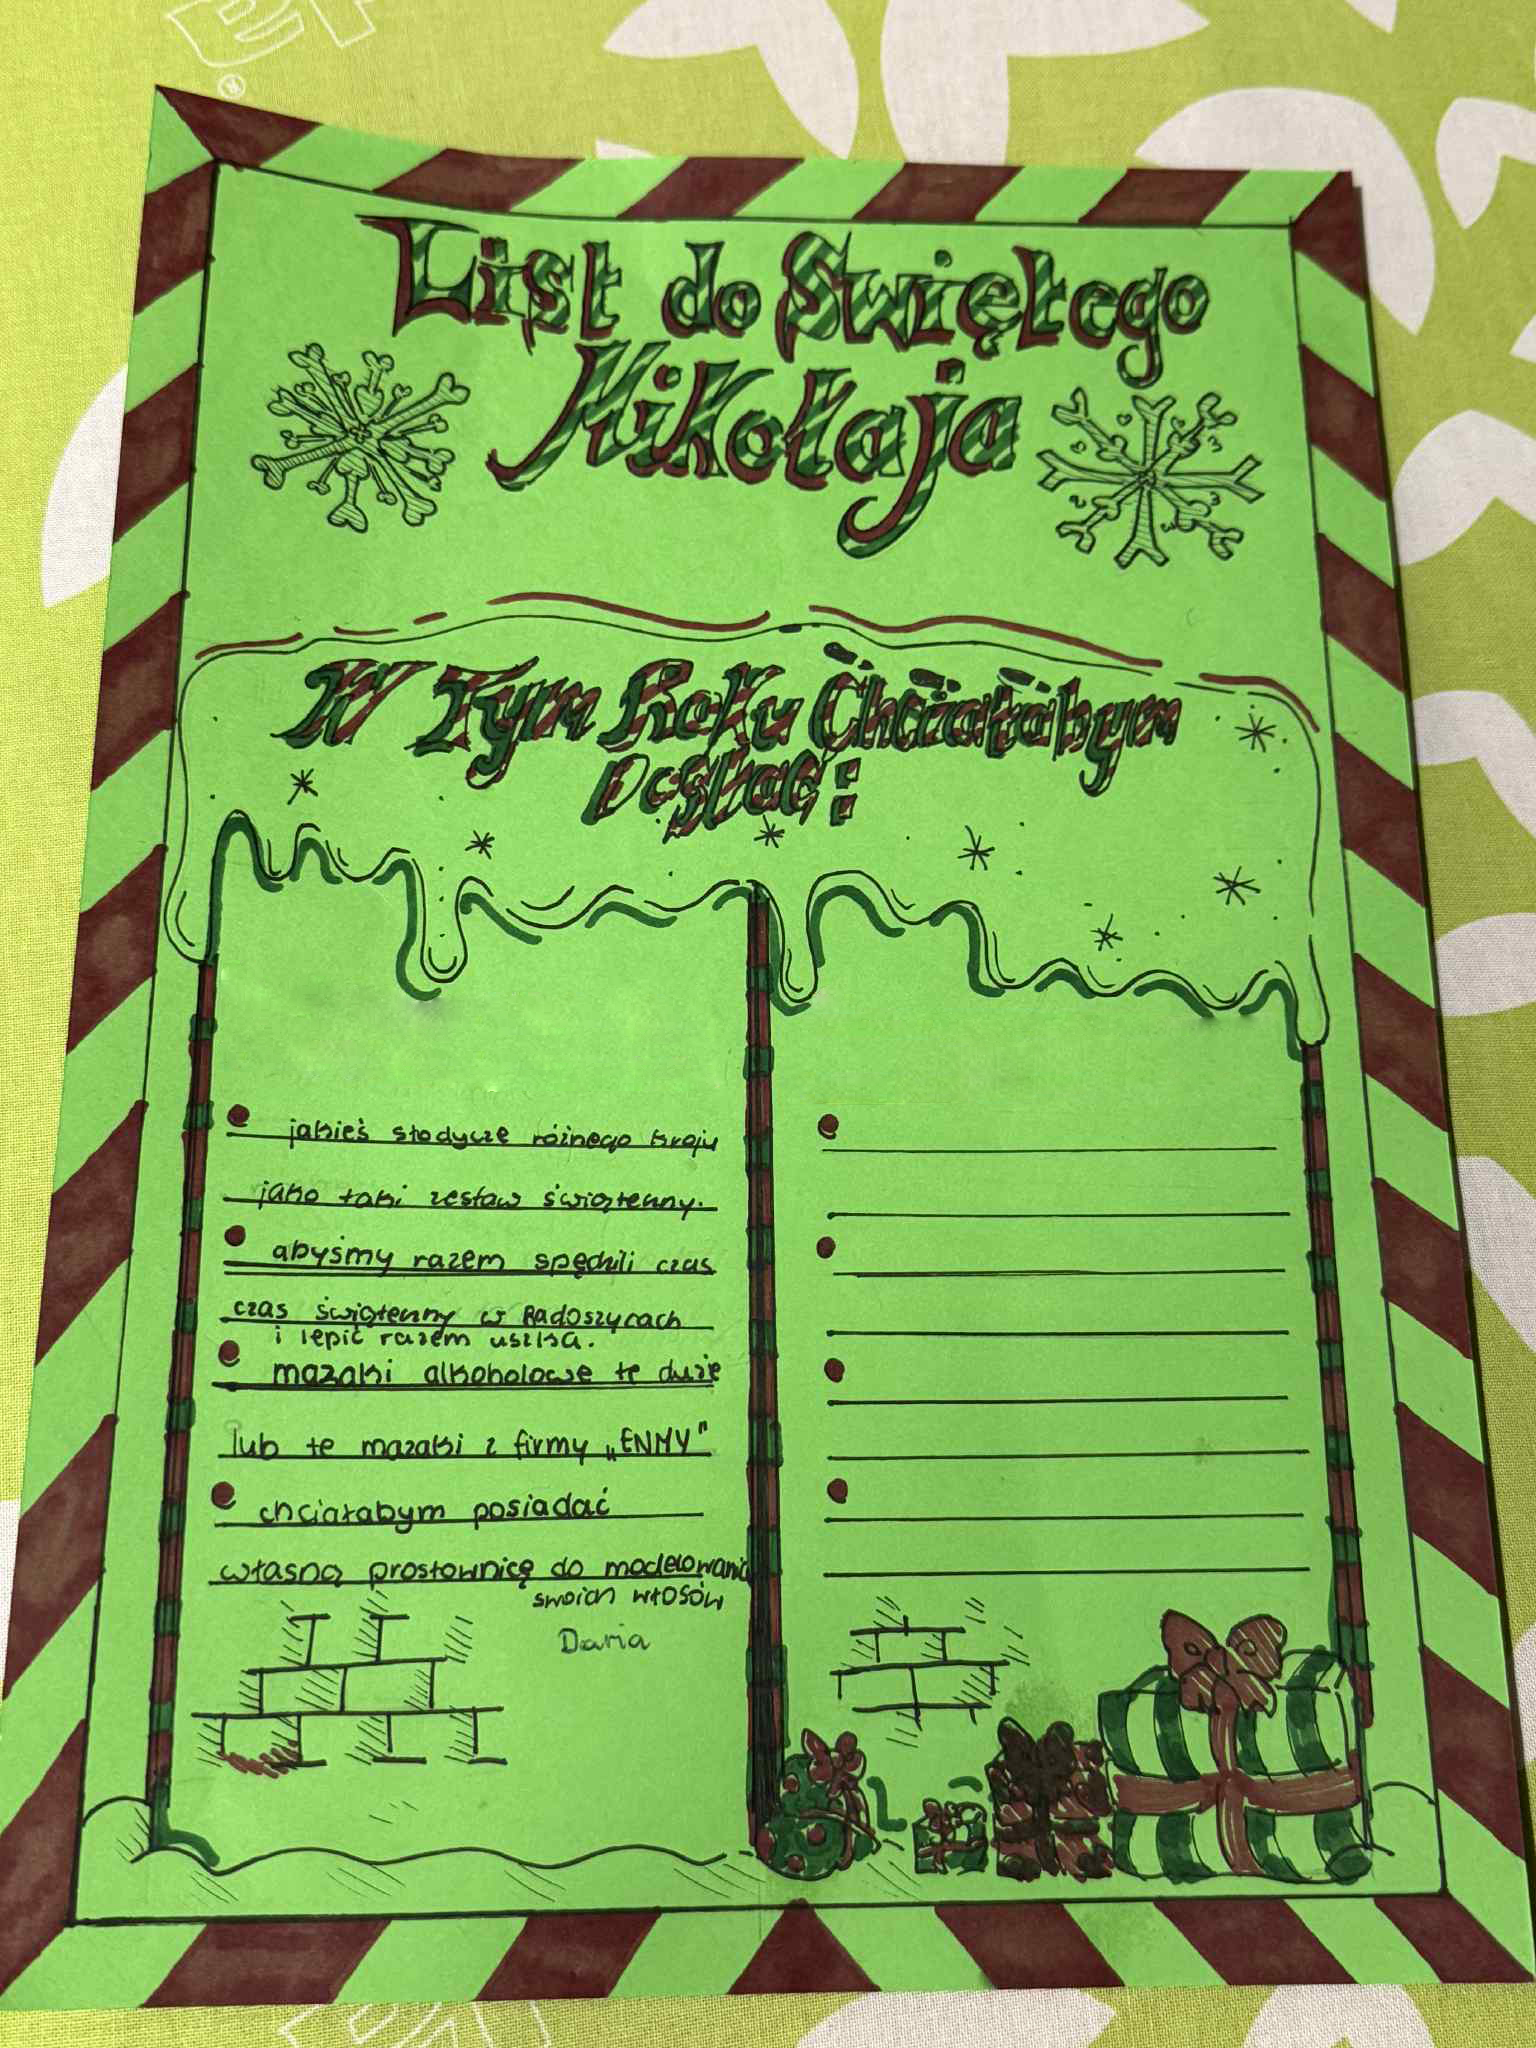 List do Świętego
Mikołaja
W Tym Roku Chciałabym
Dostać:
jakieś słodycze różnego kroju
jako taki zestaw świąteczny.
abyśmy razem spędzili czas
czas świąteczny w Radoszycach
i lepić razem uszka.
mazaki alkoholowe te duże
lub te mazaki z firmy „ENMY"
chciałabym posiadać
własną prostownicę do modelowania
swoich włosów
Daria